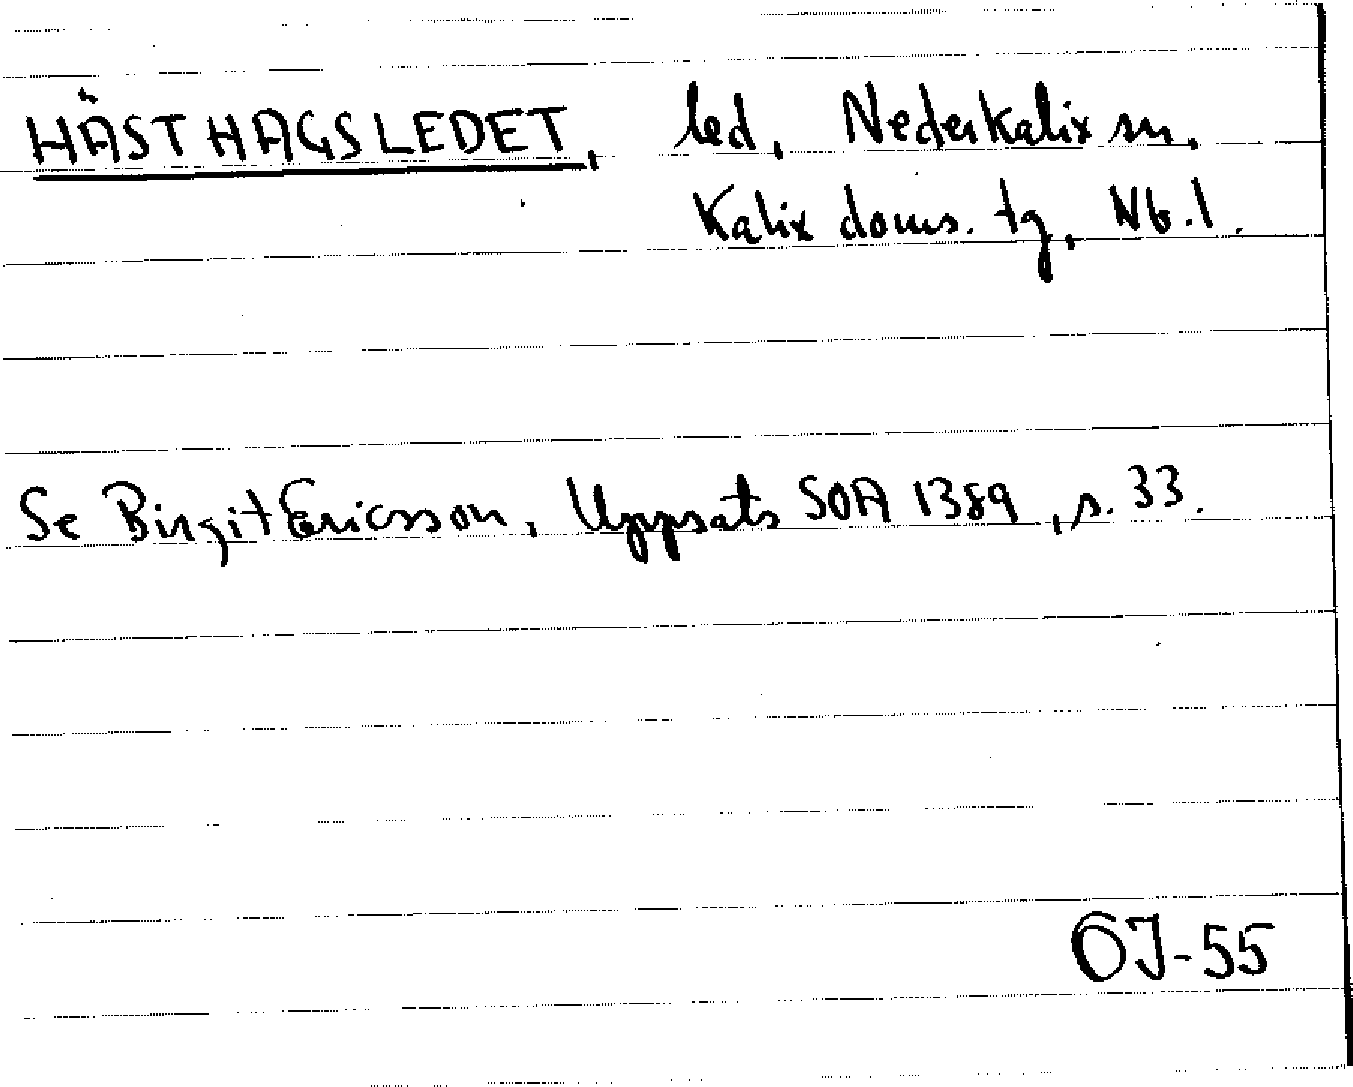 HÄSTHAGSLEDET, led, Nederkalix sn.
Kalix doms. tg, Nb. l.
Se Birgit Ericsson, Uppsats SOA 1389, s. 33.
OJ-55